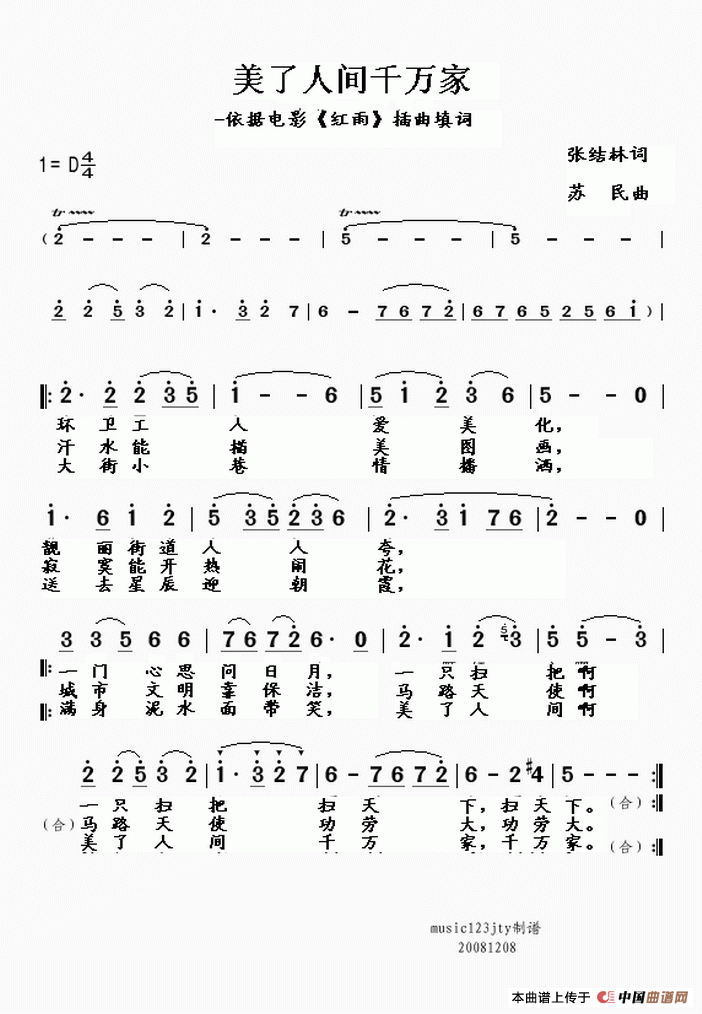 美了人间千万家
-依据电影《红雨》插曲填词
1= D 4/4
张结林词
苏 民曲
tr tr
( 2 - - - | 2 - - - | 5 - - - | 5 - - - |
2 2 5 3 2 | 1· 3 2 7 | 6 - 7 6 7 2 | 6 7 6 5 2 5 6 1 ) |
‖: 2· 2 2 3 5 | 1 - - 6 | 5 1 2 3 6 | 5 - - 0 |
环 卫 工 人 爱 美 化,
汗 水 能 描 美 图 画,
大 街 小 巷 情 播 洒,
1· 6 1 2 | 5 3 5 2 3 6 | 2· 3 1 7 6 | 2 - - 0 |
靓 丽 街 道 人 人 夸,
寂 寞 能 开 热 闹 花,
送 去 星 辰 迎 朝 霞,
3 3 5 6 6 | 7 6 7 2 6· 0 | 2· 1 2 5 3 | 5 5 - 3 |
‖: 一 门 心 思 问 日 月, 一 只 扫 把 啊
城 市 文 明 靠 保 洁, 马 路 天 使 啊
‖: 满 身 泥 水 面 带 笑, 美 了 人 间 啊
2 2 5 3 2 | 1· 3 2 7 | 6 - 7 6 7 2 | 6 - 2 #4 | 5 - - - :‖
一 只 扫 把 扫 天 下, 扫 天 下。(合) :‖
(合) 马 路 天 使 功 劳 大, 功 劳 大。
美 了 人 间 千 万 家, 千 万 家。(合) :‖
music123jty制谱
20081208
本曲谱上传于 中国曲谱网